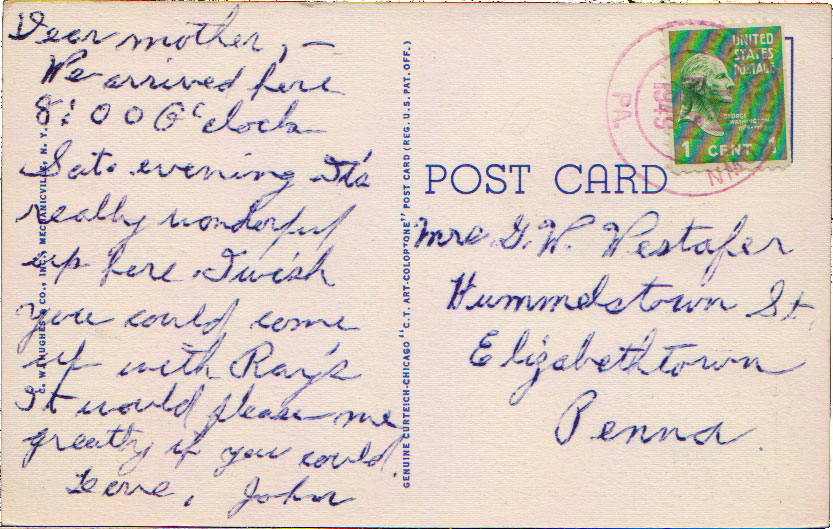 Dear mother, —
We arrived here
8:00 O'clock
Sat. evening. It's
really wonderful
up here. I wish
you could come
up with Ray's
It would please me
greatly if you could.
Love, John
C. W. HUGHES & CO., INC., MECHANICVILLE, N. Y.
GENUINE CURTEICH-CHICAGO "C.T. ART-COLORTONE" POST CARD (REG. U.S. PAT. OFF.)
POST CARD
UNITED
STATES
POSTAGE
GEORGE
WASHINGTON
1 CENT 1
1949
PA.
Mrs. G. W. Westafer
Hummelstown St.
Elizabethtown
Penna.